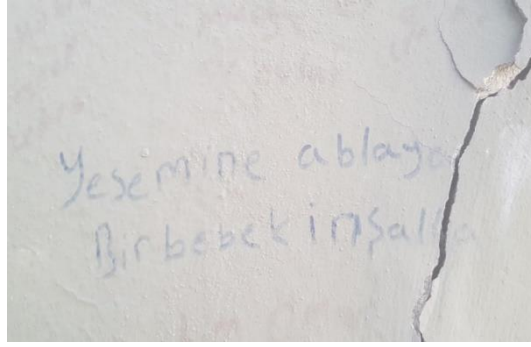 Yesemine ablaya
Bir bebek inşalla